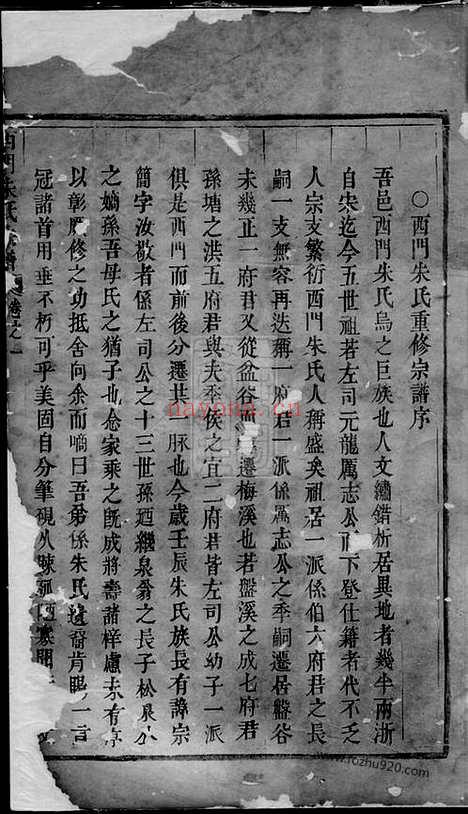 ○西門朱氏重修宗譜序
吾邑西門朱氏烏之巨族也人文繡錯析居異地者幾半兩浙
自宋迄今五世祖若左司元龍厲志公而下登仕籍者代不乏
人宗支繁衍西門朱氏人稱盛矣祖居一派係伯六府君之長
嗣一支無容再迭稱一府君一派係厲志公之季嗣遷居盤谷
未幾正一府君又從盆谷而遷梅溪也若盤溪之成七府君
孫塘之洪五府君與夫黍侯之宜二府君皆左司公幼子一派
俱是西門而前後分遷其一脉也今歲壬辰朱氏族長有諱宗
簡字汝敬者係左司公之十三世孫廼繼泉翁之長子松泉公
之嫡孫吾母氏之猶子也念家乘之既成將壽諸梓慮未有序
以彰厥修之功抵舍向余而嘀曰吾弟係朱氏遠裔肯賜一言
冠諸首用垂不朽可乎美固自分筆硯久疎孤陋寡聞
西門朱氏宗譜
卷之一
nayona.cn
www.fozhu920.com